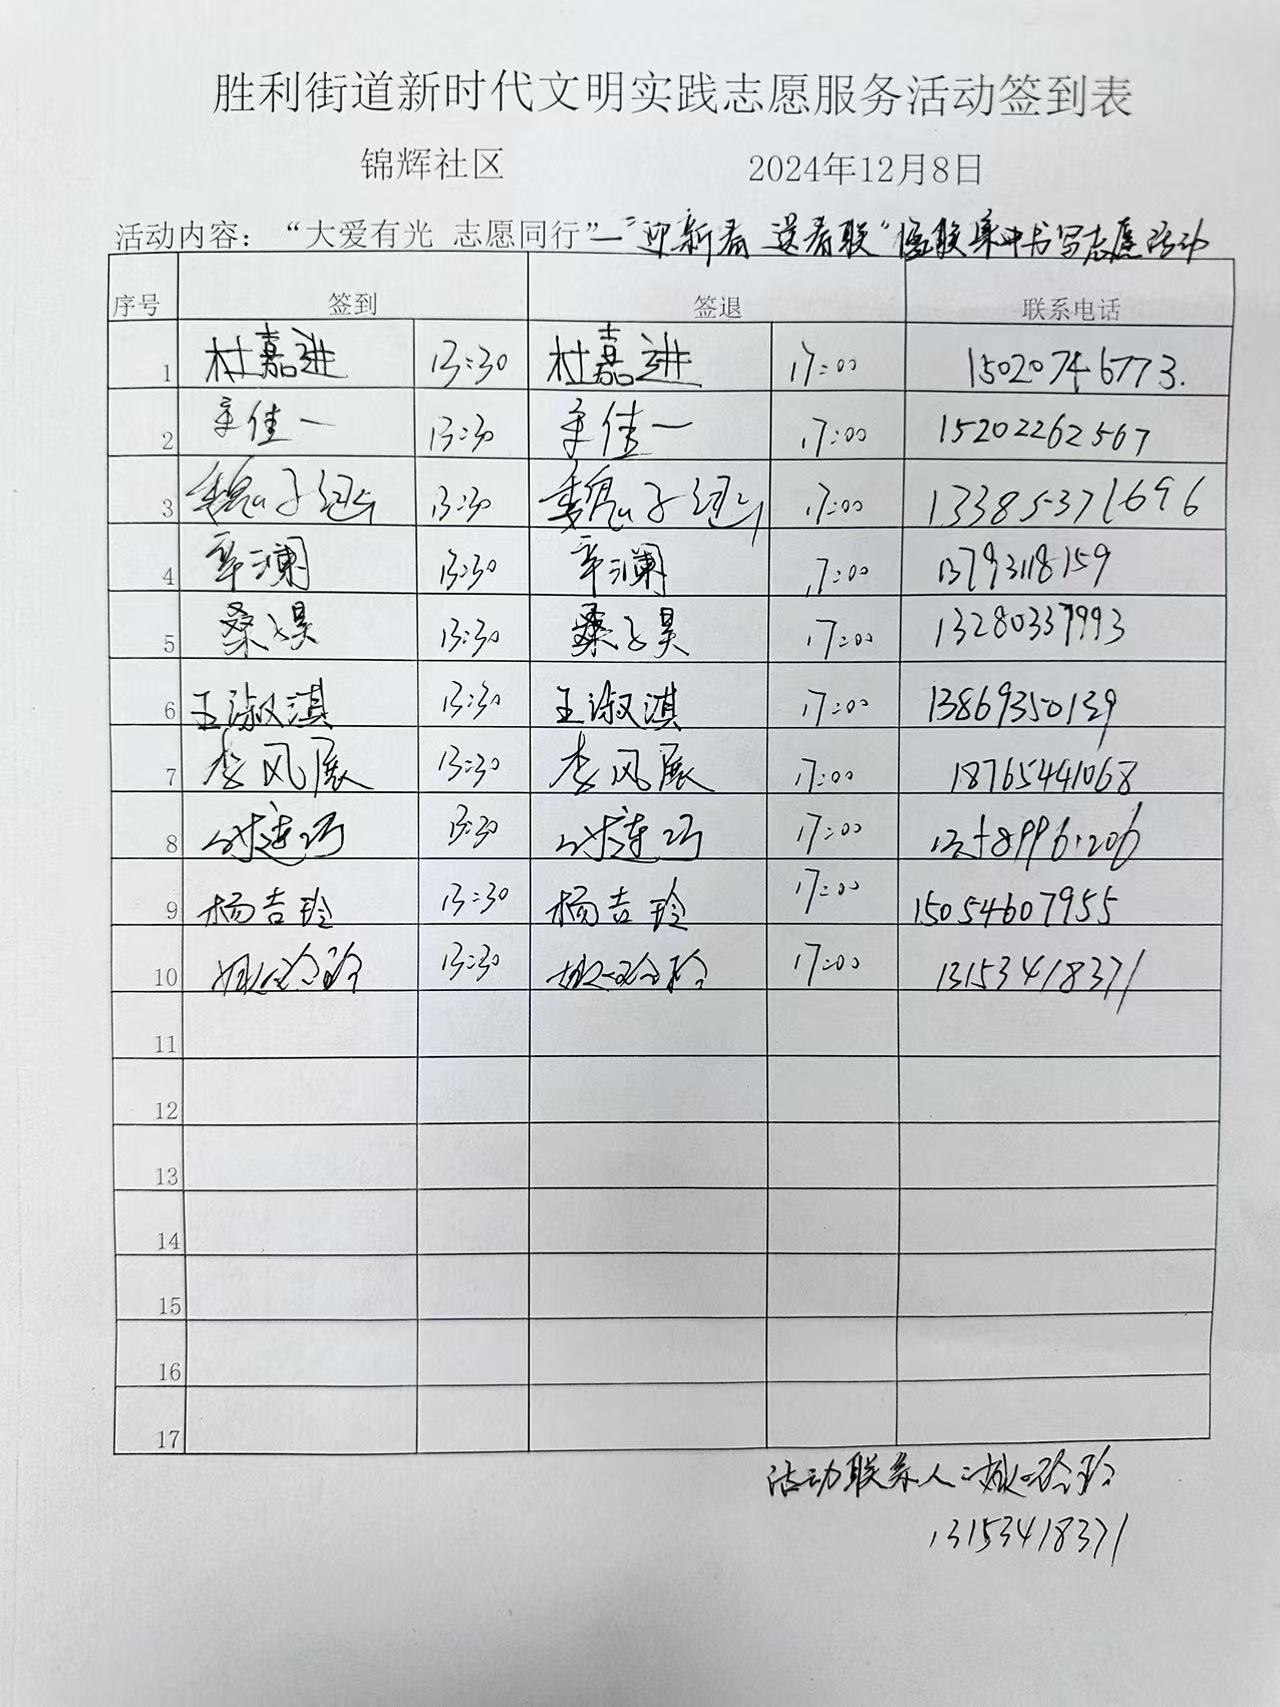 胜利街道新时代文明实践志愿服务活动签到表
锦辉社区 2024年12月8日
活动内容：“大爱有光 志愿同行”—“迎新春 送春联”春联集中书写志愿活动
序号 签到 签退 联系电话
1 杜嘉进 13:30 杜嘉进 17:00 15020746773.
2 辛佳一 13:30 辛佳一 17:00 15202262567
3 魏子 13:30 魏子 17:00 13385371696
4 辛澜 13:30 辛澜 17:00 13793118159
5 桑子昊 13:30 桑子昊 17:00 13280337993
6 王淑淇 13:30 王淑淇 17:00 13869350139
7 李风展 13:30 李风展 17:00 18765441068
8 时连巧 13:30 时连巧 17:00
9 杨吉玲 13:30 杨吉玲 17:00 15054607955
10 玲 13:30 玲 17:00 13153418371
11
12
13
14
15
16
17
活动联系人：玲
13153418371